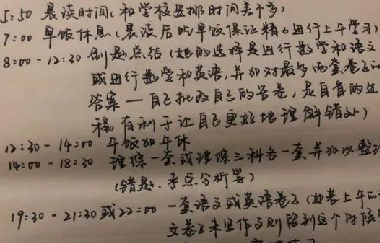 5:50 晨读时间(和学校安排时间差不多)
7:00 早饭休息(晨读后吃早饭保证精力进行上午学习)
8:00-12:30 刷题总结(她的选择是进行数学和语文
或进行数学和英语,并却对最多两套卷子对
答案——自己批改自己的答卷,是自省的过
程 有利于让自己更好地理解错处)
12:30-14:00 午饭and午休
14:00-18:30 理综一套或理综三科各一套并却以整理
(错题、考点分析等)
19:30-21:30或22:00 一套语文或英语卷子(如若上午的
文卷子未写作文则留到这个时段